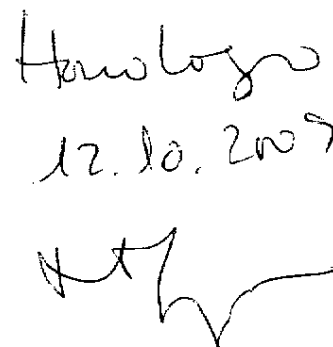 Homologo
12.10.2009